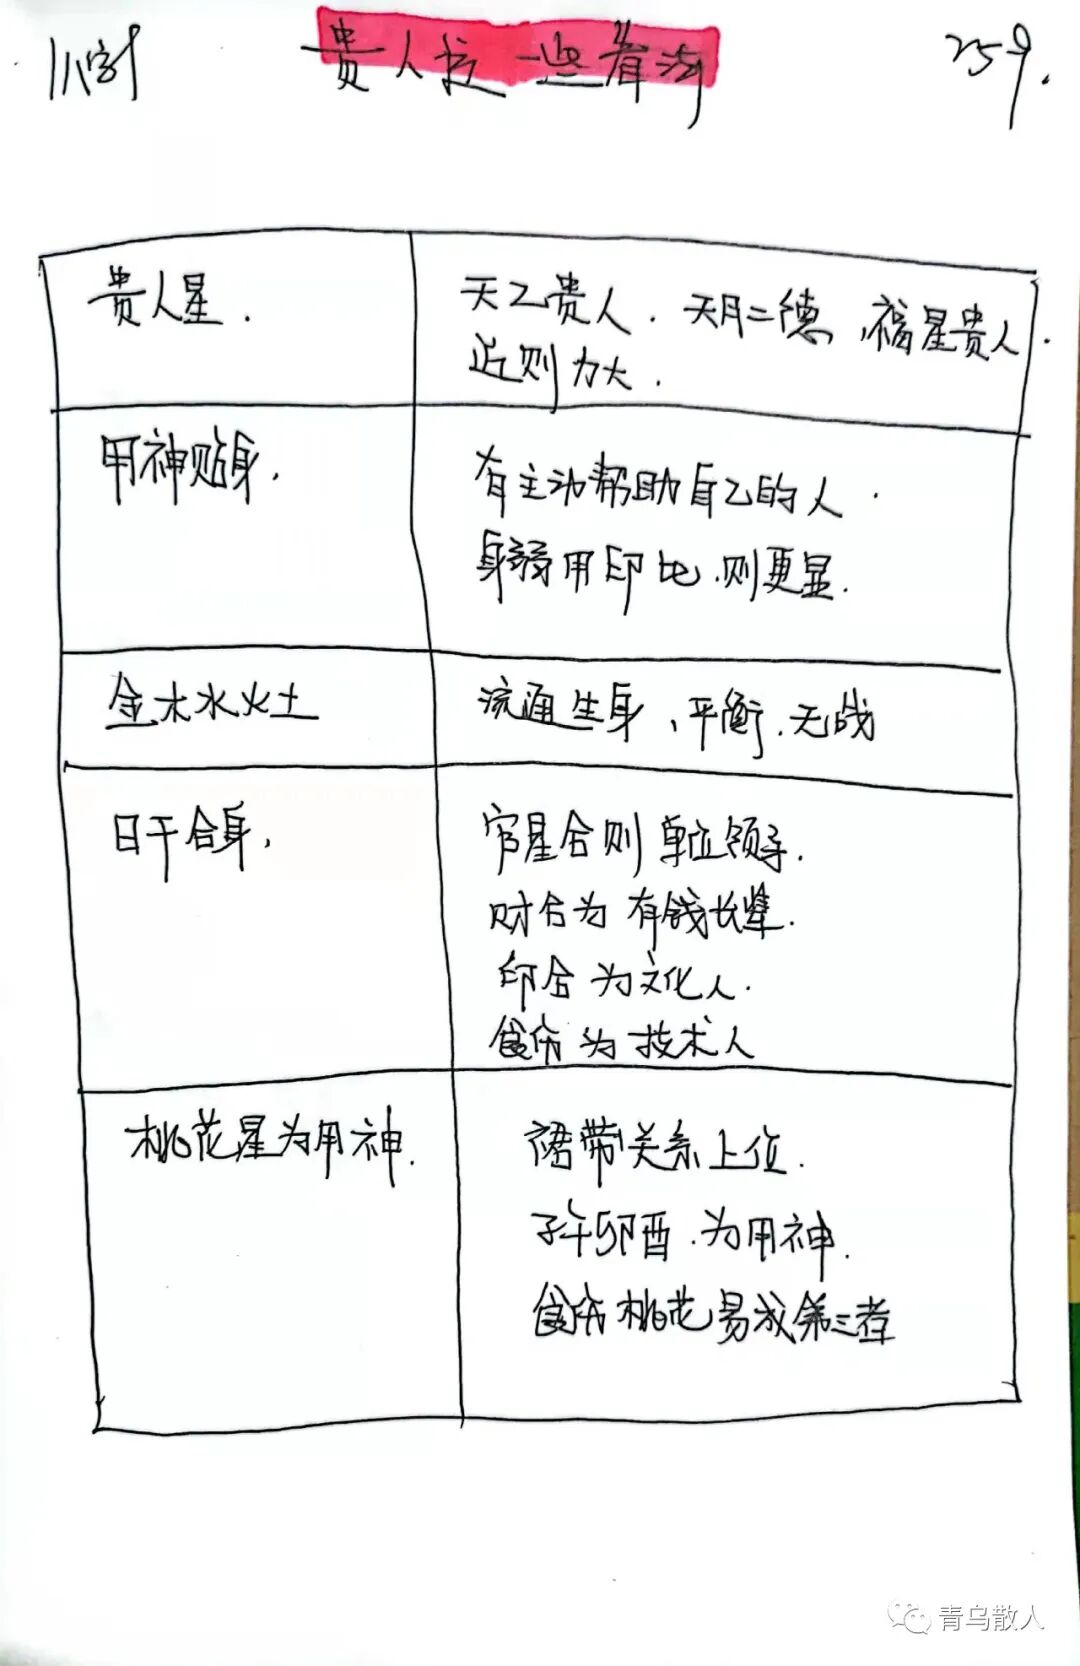 八字
贵人扶运看法
259.
贵人星.
天乙贵人. 天月二德, 福星贵人.
近则力大.
用神贴身,
有主动帮助自己的人.
身弱用印比.则更显.
金木水火土
流通生身,平衡.无战
日干合身,
官星合则 单位领导.
财合为 有钱长辈.
印合为文化人.
食伤为技术人
桃花星为用神.
裙带关系上位.
子午卯酉.为用神.
食伤桃花易成第三者
青乌散人